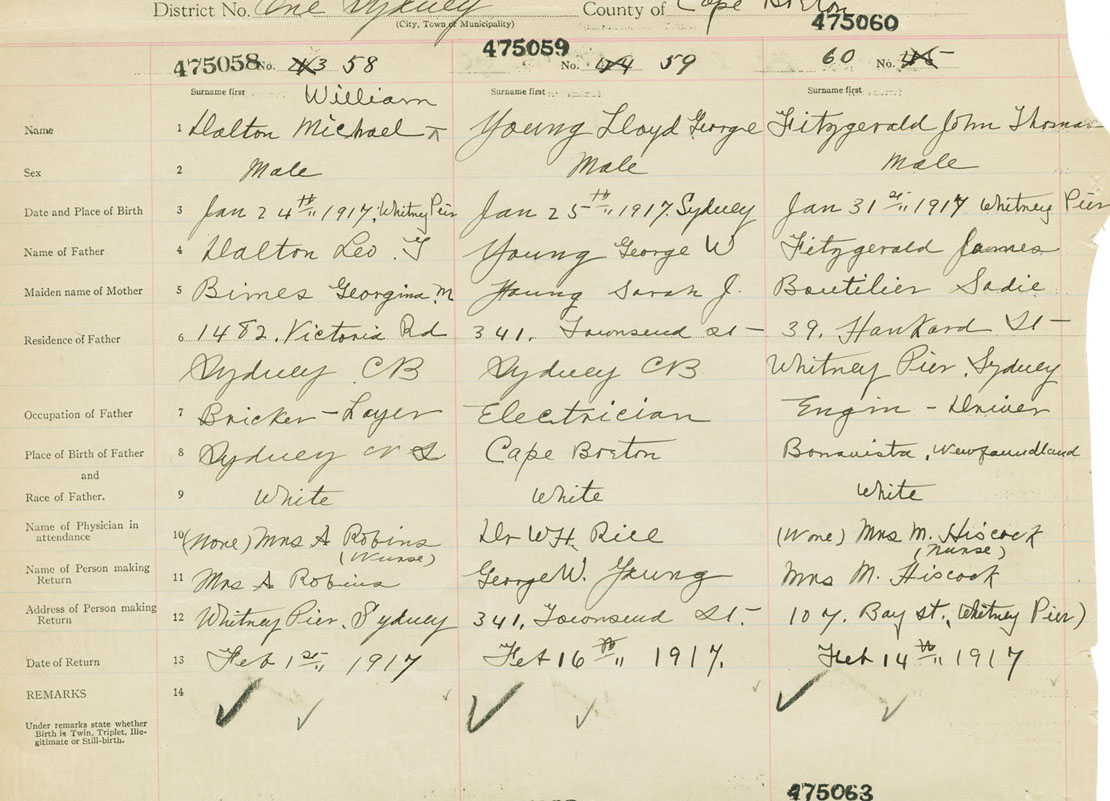 District No. One Sydney County of Cape Breton
(City, Town or Municipality)
475058 No. 43 58 475059 No. 44 59 475060 60 No. 45
Surname first Surname first Surname first
William
Name 1 Dalton Michael ⊼ Young Lloyd George Fitzgerald John Thomas
Sex 2 Male Male Male
Date and Place of Birth 3 Jan 24th,, 1917, Whitney Pier Jan 25th,, 1917. Sydney Jan 31st,, 1917 Whitney Pier
Name of Father 4 Dalton Leo. J Young George W Fitzgerald James
Maiden name of Mother 5 Georgina M Young Sarah J. Boutilier Sadie
Residence of Father 6 1482. Victoria Rd 341. Townsend St 39. Hankard St
Sydney CB Sydney CB Whitney Pier. Sydney
Occupation of Father 7 Bricker - Layer Electrician Engin - Driver
Place of Birth of Father 8 Sydney N S Cape Breton Bonavista, Newfoundland
and
Race of Father. 9 White White White
Name of Physician in attendance 10 (None) Mrs A Robins Dr W.H. Rice (None) Mrs M. Hiscock
(Nurse) (Nurse)
Name of Person making Return 11 Mrs A Robins George W. Young Mrs M. Hiscock
Address of Person making Return 12 Whitney Pier. Sydney 341, Townsend St. 107. Bay St., (Whitney Pier)
Date of Return 13 Feb 1st,, 1917 Feb 16th,, 1917. Feb 14th,, 1917
REMARKS 14
Under remarks state whether
Birth is Twin, Triplet, Ille-
gitimate or Still-birth.
475063